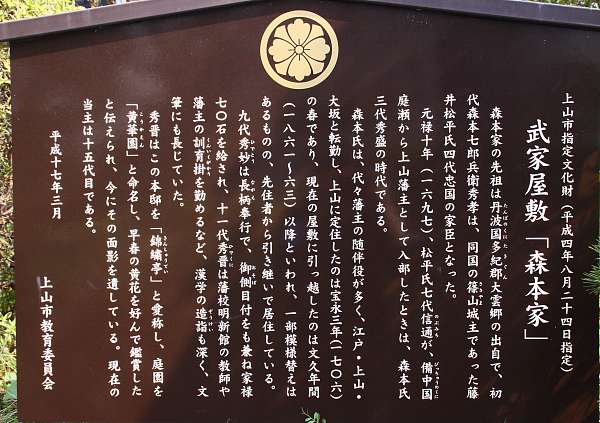 上山市指定文化財(平成四年八月二十四日指定)
武家屋敷「森本家」
森本家の先祖は丹波国多紀郡大雲郷の出自で、初
代森本七郎兵衛秀孝は、同国の篠山城主であった藤
井松平氏四代忠国の家臣となった。
元禄十年(一六九七)、松平氏七代信通が、備中国
庭瀬から上山藩主として入部したときは、森本氏
三代秀盛の時代である。
森本氏は、代々藩主の随伴役が多く、江戸・上山・
大坂と転勤し、上山に定住したのは宝永三年(一七〇六)
の春であり、現在の屋敷に引っ越したのは文久年間
(一八六一~六三)以降といわれ、一部模様替えは
あるものの、先住者から引き継いで居住している。
九代秀妙は長柄奉行で、御側目付をも兼ね家禄
七〇石を給され、十一代秀晋は藩校明新館の教師や
藩主の訓育掛を勤めるなど、漢学の造詣も深く、文
筆にも長じていた。
秀晋はこの本邸を「錦繍亭」と愛称し、庭園を
「黄華園」と命名し、早春の黄花を好んで鑑賞した
と伝えられ、今にその面影を遺している。現在の
当主は十五代目である。
平成十七年三月
上山市教育委員会